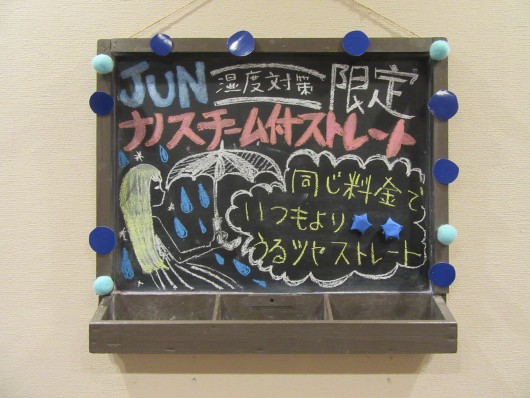 JUN 湿度対策 限定
ナノスチーム付ストレート
同じ料金で
いつもより
うるツヤストレート